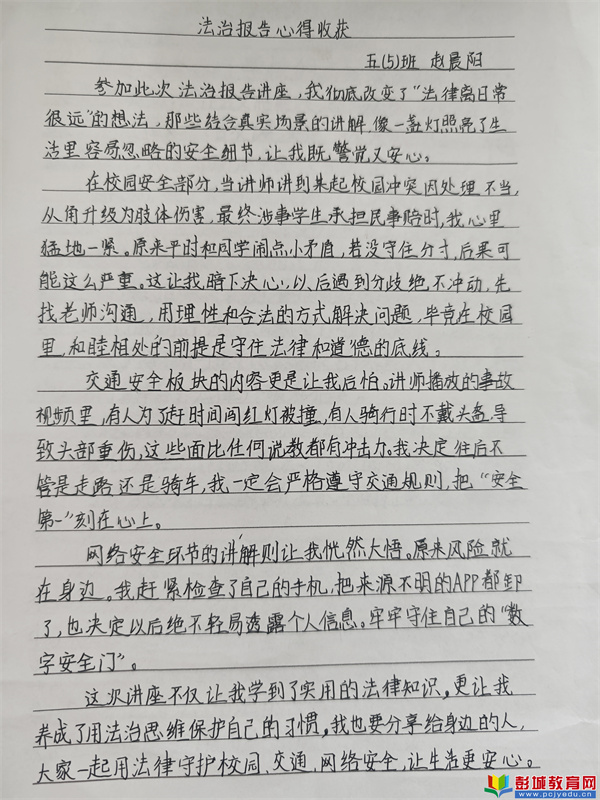 法治报告心得收获
五(5)班 赵晨阳
参加此次法治报告讲座，我彻底改变了“法律离日常
很远”的想法，那些结合真实场景的讲解像一盏灯照亮了生
活里容易忽略的安全细节，让我既警觉又安心。
在校园安全部分，当讲师讲到某起校园冲突因处理不当，
从角升级为肢体伤害，最终涉事学生承担民事赔时，我心里
猛地一紧。原来平时和同学闹点小矛盾，若没守住分寸，后果可
能这么严重。这让我暗下决心，以后遇到分歧绝不冲动，先
找老师沟通，用理性和合法的方式解决问题，毕竟在校园
里，和睦相处的前提是守住法律和道德的底线。
交通安全板块的内容更是让我后怕。讲师播放的事故
视频里，有人为了赶时间闯红灯被撞，有人骑行时不戴头盔导
致头部重伤，这些面比任何说教都有冲击力。我决定往后不
管是走路还是骑车，我一定会严格遵守交通规则，把“安全
第一”刻在心上。
网络安全环节的讲解则让我恍然大悟。原来风险就
在身边。我赶紧检查了自己的手机，把来源不明的APP都卸
了，也决定以后绝不轻易透露个人信息。牢牢守住自己的“数
字安全门”。
这次讲座不仅让我学到了实用的法律知识，更让我
养成了用法治思维保护自己的习惯，我也要分享给身边的人，
大家一起用法律守护校园、交通、网络安全，让生活更安心。
彭城教育网
www.pcjyedu.com